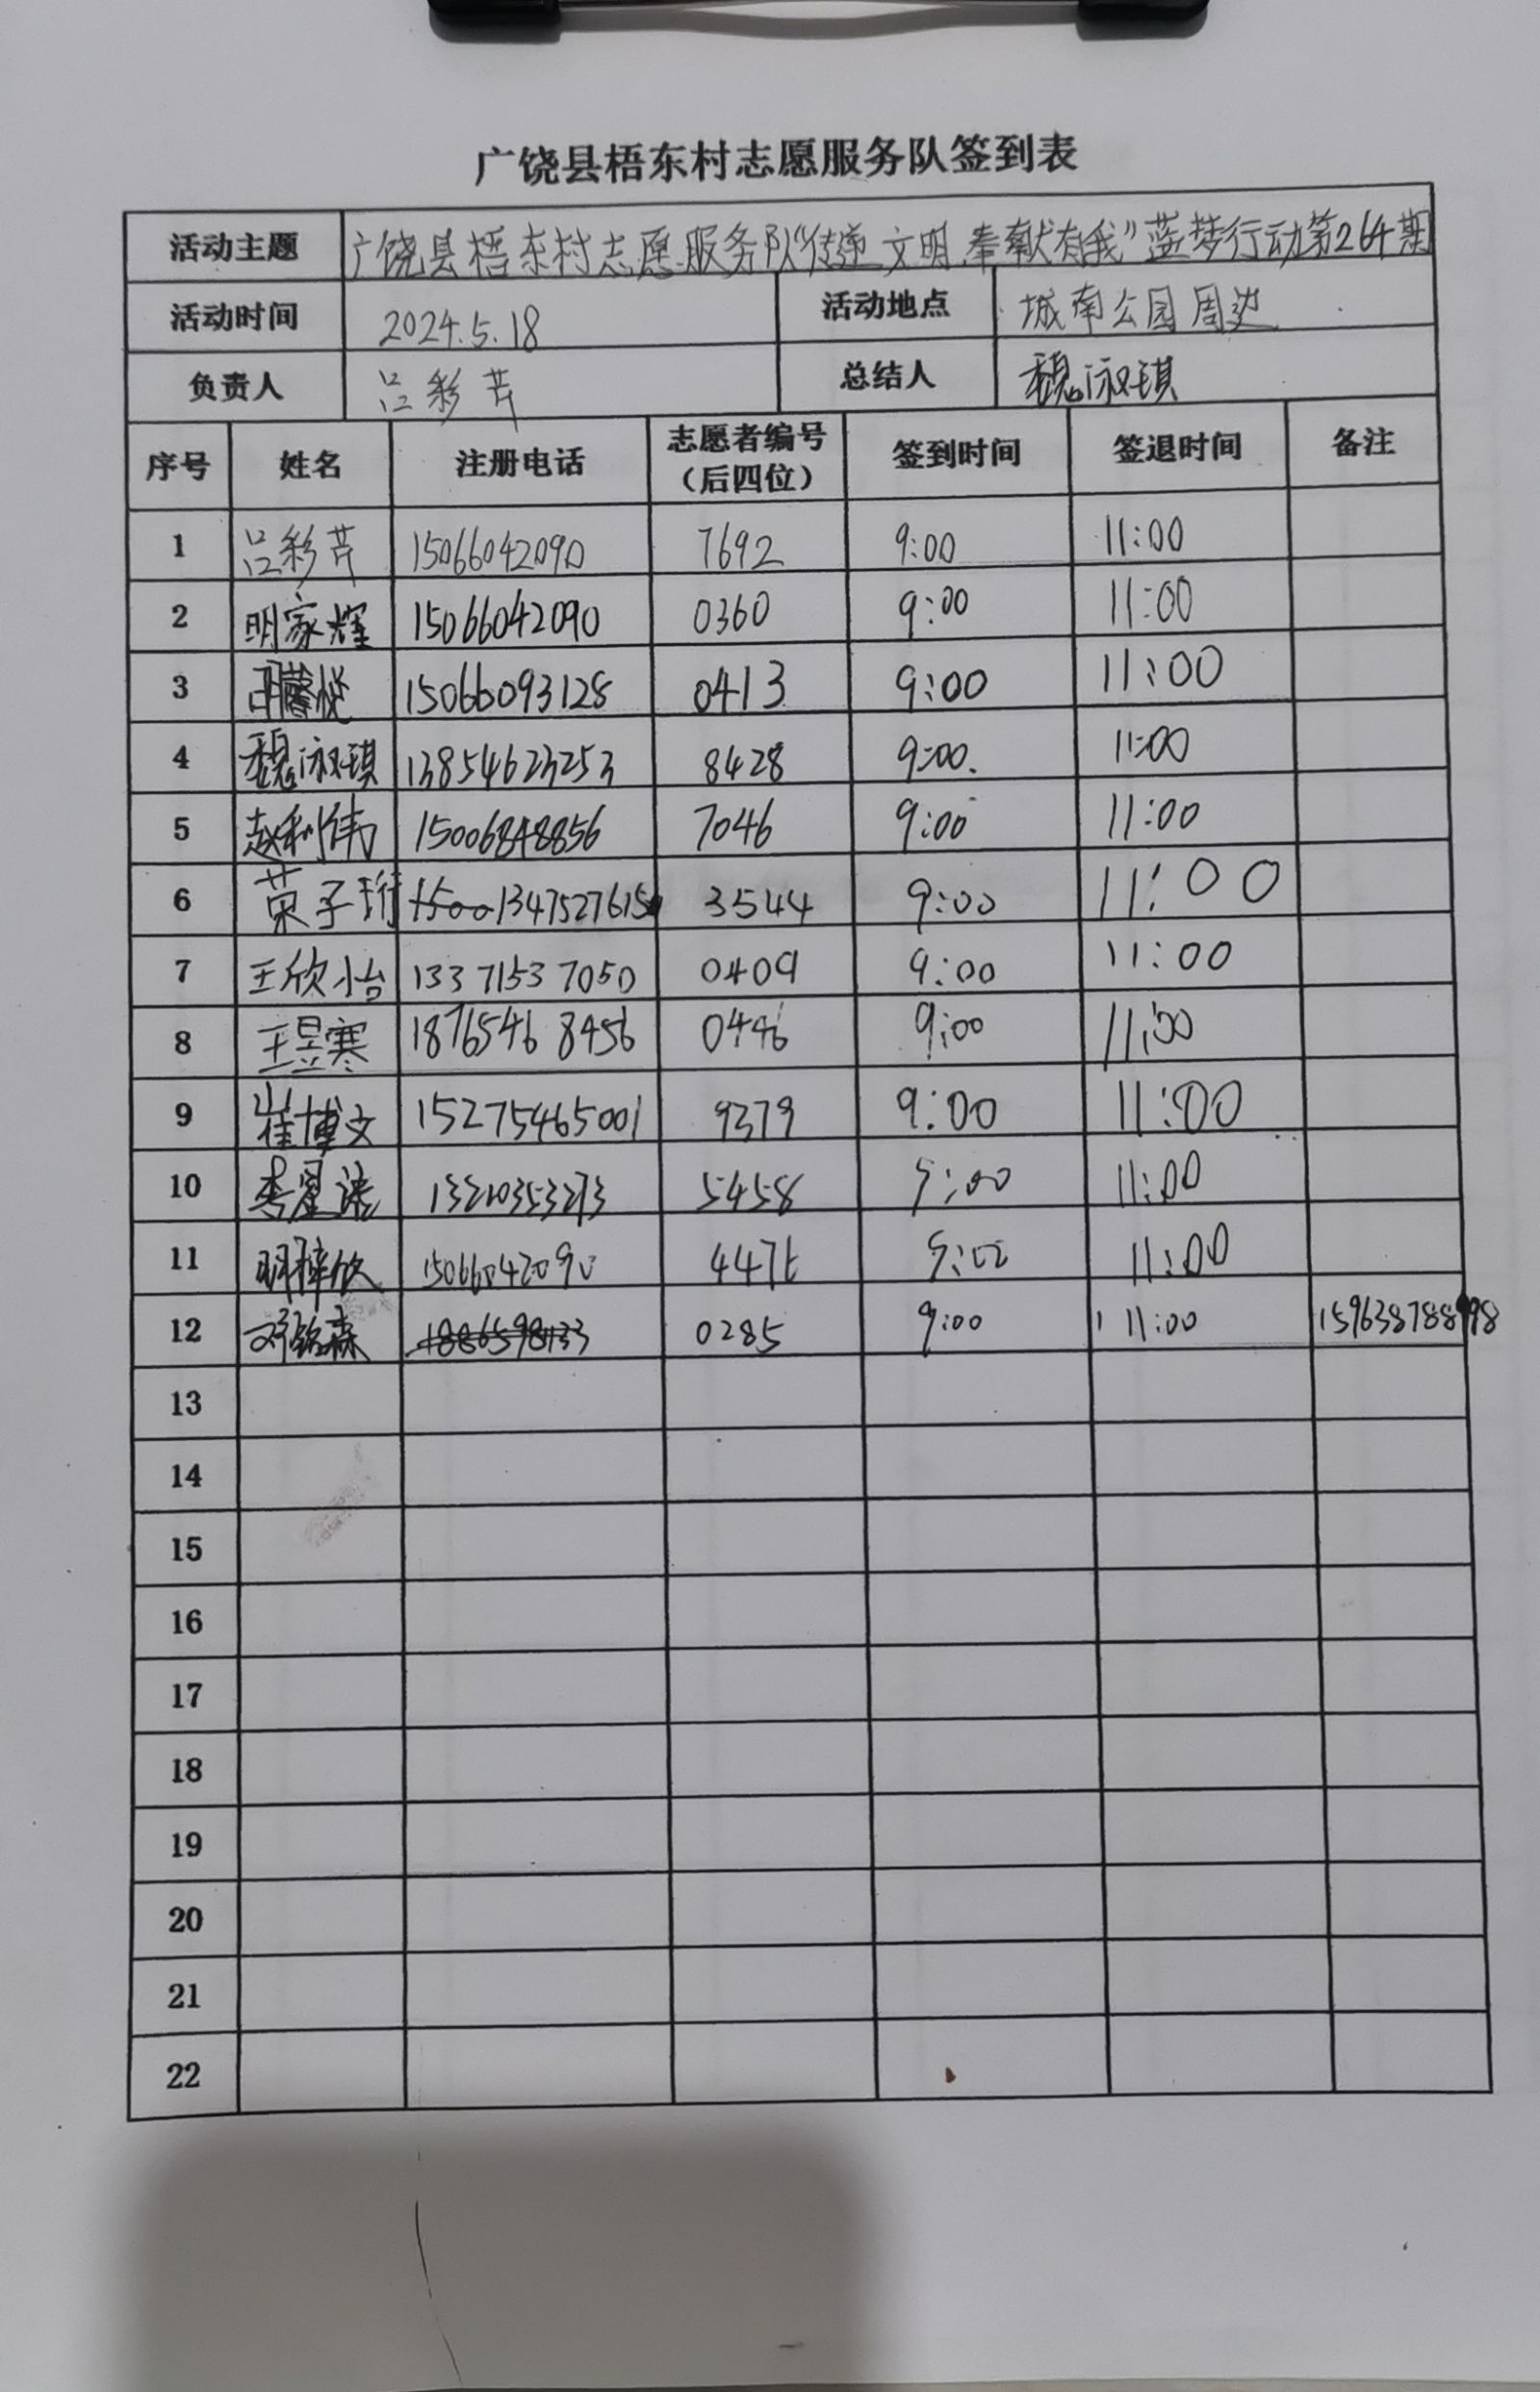 广饶县梧东村志愿服务队签到表
活动主题 广饶县梧东村志愿服务队“传递文明.奉献有我”蓝梦行动第264期
活动时间 2024.5.18 活动地点 城南公园周边
负责人 吕彩芹 总结人 魏淑琪
序号 姓名 注册电话 志愿者编号（后四位） 签到时间 签退时间 备注
1 吕彩芹 15066042090 7692 9:00 11:00
2 明家辉 15066042090 0360 9:00 11:00
3 15066093128 0413 9:00 11:00
4 魏淑琪 13854623253 8428 9:00. 11:00
5 赵利伟 15006848856 7046 9:00 11:00
6 荣子珩 3544 9:00 11:00
7 王欣怡 13371537050 0409 9:00 11:00
8 王昱寒 18765468456 0446 9:00 11:00
9 崔博文 15275465001 9379 9:00 11:00
10 5458 9:00 11:00
11 明梓欣 15066042090 9:00 11:00
12 0285 9:00 11:00
13
14
15
16
17
18
19
20
21
22